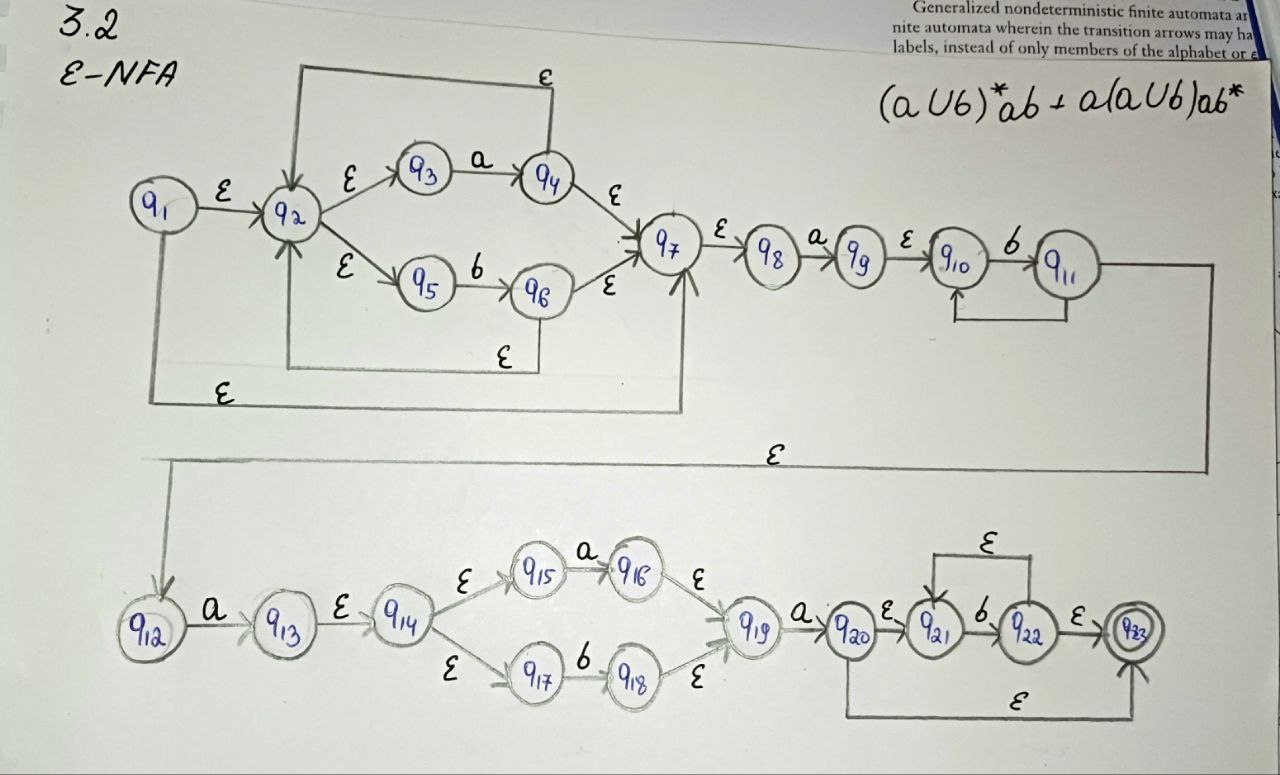 3.2
ε-NFA
Generalized nondeterministic finite automata ar
nite automata wherein the transition arrows may ha
labels, instead of only members of the alphabet or ε
(a∪b)*ab + a(a∪b)ab*
ε
q3 a q4
ε ε
q1 ε q2 q7 ε q8 a q9 ε q10 b q11
ε ε
q5 b q6
ε
ε
ε
ε
q15 a q16
ε ε
q12 a q13 ε q14 q19 a q20 ε q21 b q22 ε q23
ε ε
q17 b q18
ε